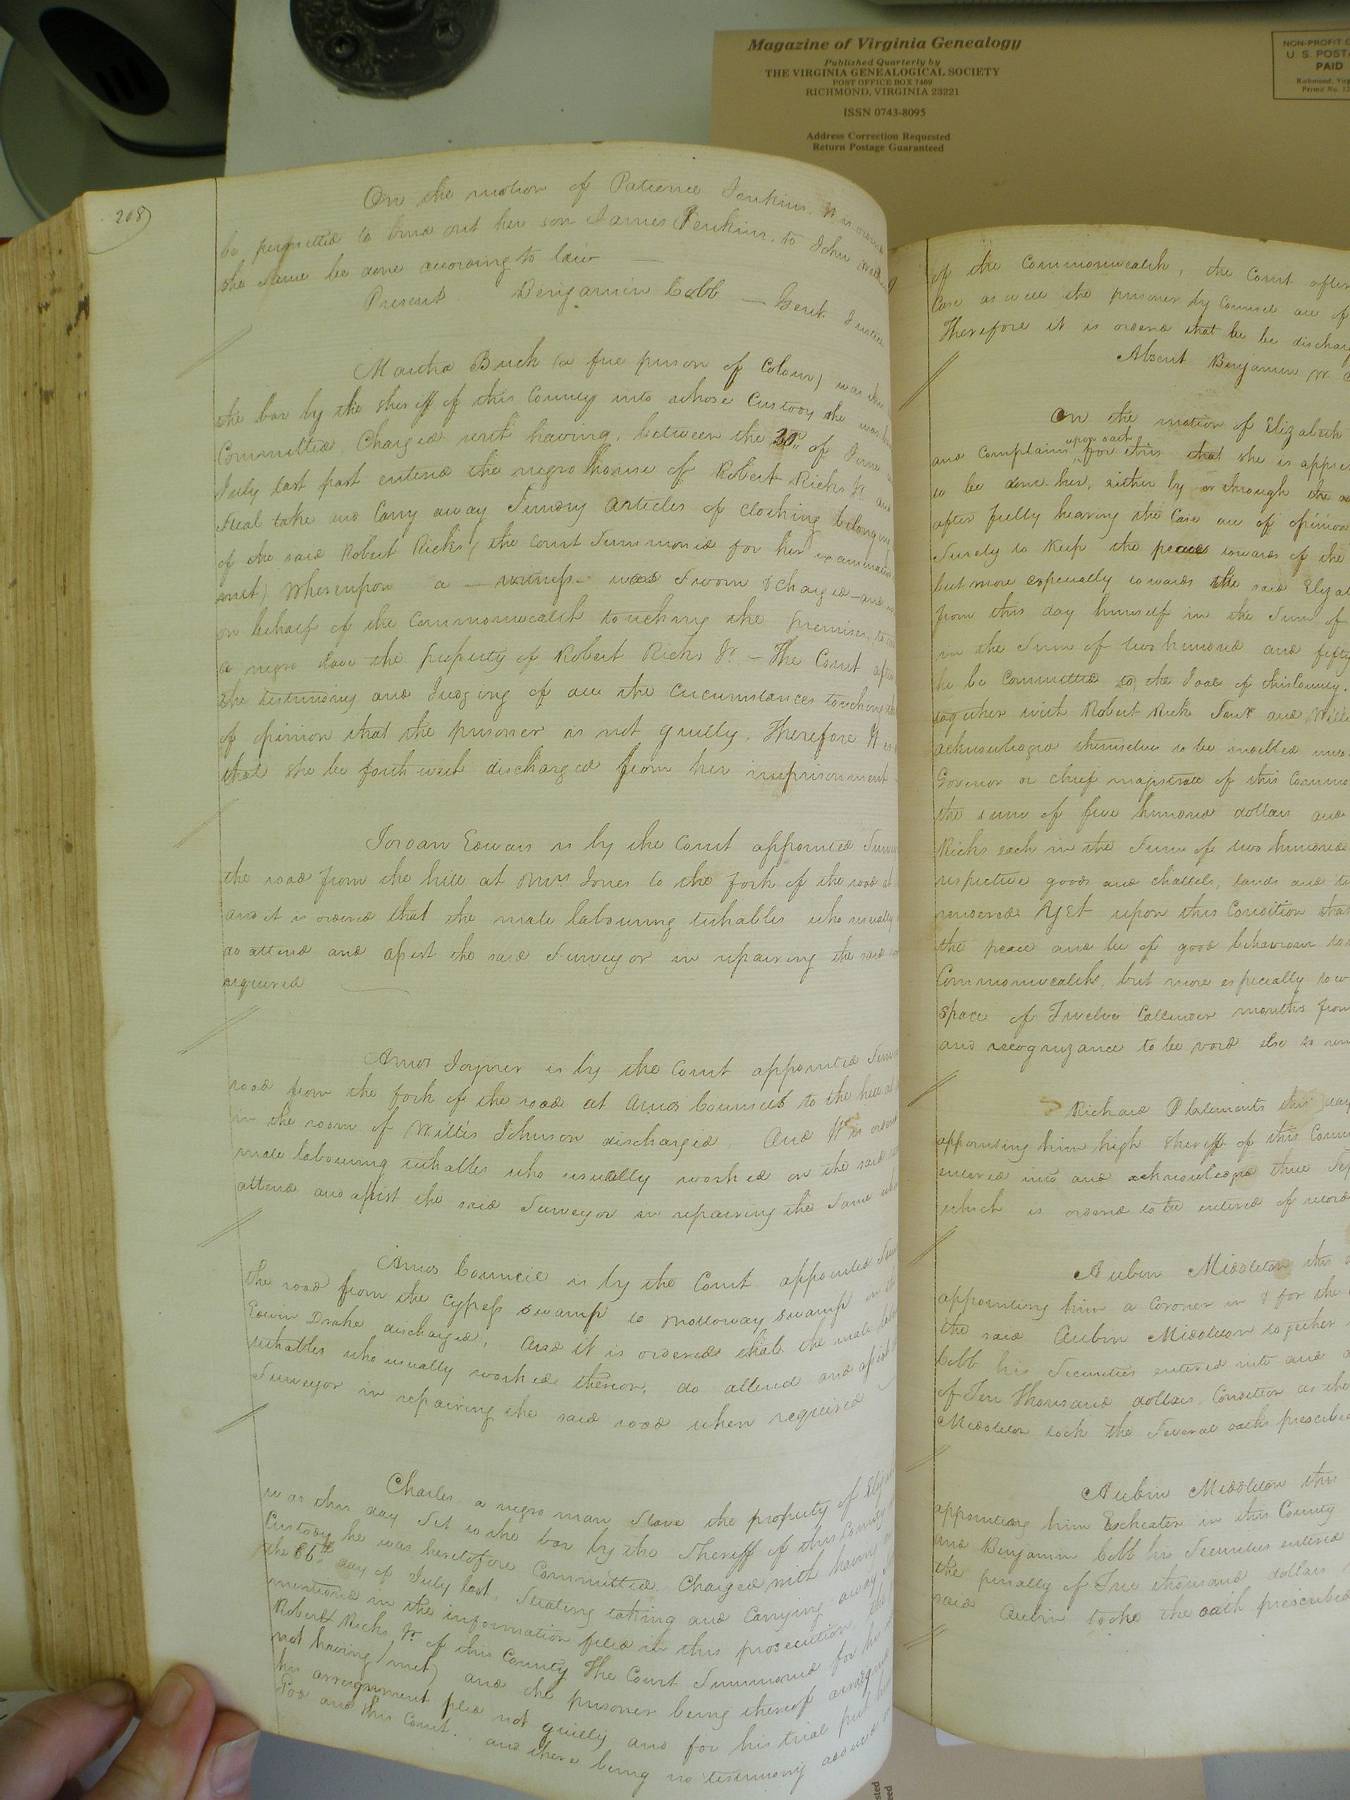 Magazine of Virginia Genealogy
Published Quarterly by
THE VIRGINIA GENEALOGICAL SOCIETY
POST OFFICE BOX 7469
RICHMOND, VIRGINIA 23221
ISSN 0743-8095
Address Correction Requested
Return Postage Guaranteed
NON-PROFIT
U. S. POST
PAID
Richmond, Vir
Permit No.
208)
On the motion of Patience Jenkins. It is
be permitted to bind out her son James Jenkins, to John
the same be done according to law
Present Benjamin Cobb — Gent. Justice
Martha Buck (a free person of Colour) was
the bar by the sheriff of this County into whose Custody she was
Committed, Charged with having, between the 20th of June
July last past entered the negro house of Robert Ricks Jr and
steal take and Carry away Sundry articles of clothing belonging
of the said Robert Ricks, (the Court Summoned for her examination
met) Whereupon a — witness — was Sworn & charged — and
on behalf of the Commonwealth touching the premises, to
a negro slave the property of Robert Ricks Jr. — The Court after
the testimony and Judging of all the Circumstances touching
of opinion that the prisoner is not guilty. Therefore It is
that she be forthwith discharged from her imprisonment
Jordan Edwards is by the Court appointed
the road from the hill at Mrs Jones to the fork of the road at
and it is ordered that the male labouring tithables who usually
do attend and assist the said Surveyor in repairing the said
required
Amos Joyner is by the Court appointed
road from the fork of the road at Amos Councils to the hill at
in the room of Willis Johnson discharged. And It is ordered
male labouring tithables who usually worked on the said
attend and assist the said Surveyor in repairing the Same
Amos Council is by the Court appointed
the road from the Cypress Swamp to Nottoway Swamp in the
Edwin Drake discharged; And it is ordered that the male
tithables who usually worked thereon, do attend and assist
Surveyor in repairing the said road when required
Charles a negro man Slave the property of
was this day Set to the bar by the Sheriff of this County
Custody he was heretofore Committed Charged with having
the day of July last, Stealing taking and Carrying away
mentioned in the information filed in this prosecution, the
Robert Ricks Jr of this County The Court Summoned for his
not having met) and the prisoner being thereof arraigned
his arraignment pled not guilty and for his trial put
God and this Court. and there being no testimony adduced
of the Commonwealth, the Court after
Case as well the prisoner by Counsel are of
Therefore it is ordered that he be discharged
Absent Benjamin W
On the motion of Elizabeth
upon oath
and Complains for this that she is
to be done her, either by or through the
after fully hearing the Case are of opinion
Surety to Keep the peace towards of the
but more especially towards the said
from this day himself in the Sum of
in the Sum of two hundred and fifty
he be Committed to the Jail of this County.
together with Robert Ricks Senr and
acknowledged themselves to be indebted
Governor or chief magistrate of this
the sum of five hundred dollars and
Ricks each in the Sum of two hundred
respective goods and chattels, lands and
rendered. Yet upon this Condition that
the peace and be of good behaviour
Commonwealth, but more especially
space of Twelve Callender months from
and recognizance to be void else to
Richard P Clements this day
appointing him high Sheriff of this
entered into and acknowledged three
which is ordered to be entered of record
Aubin Middleton this
appointing him a Coroner in & for the
the said Aubin Middleton together
Cobb his Securities entered into and
of Ten Thousand dollars, Condition as the
Middleton took the Several oaths prescribed
Aubin Middleton this
appointing him Escheator in this County
and Benjamin Cobb his Securities entered
the penalty of thousand dollars
said Aubin took the oath prescribed